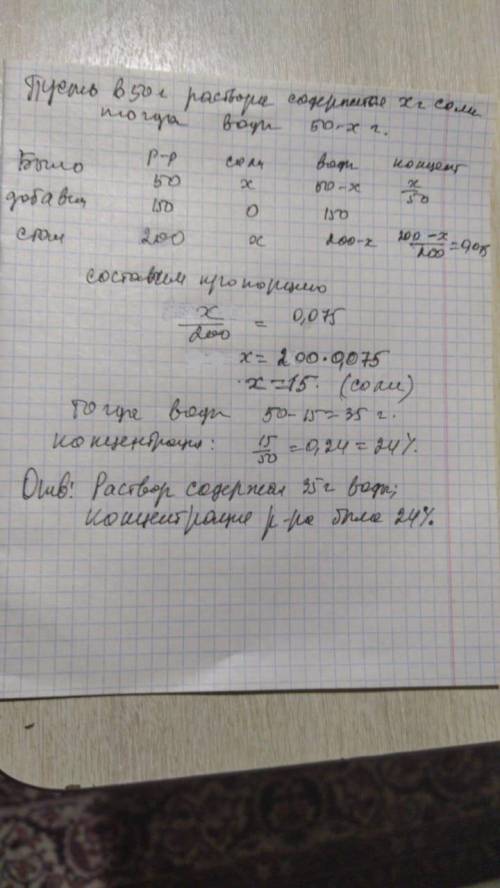 Пусть в 50 г раствора содержится х г соли
тогда воды 50-х г.
р-р соли воды концент
Было 50 х 50-х х/50
добавили 150 0 150
стало 200 х 200-х 200-х/200 = 0,075
составим пропорцию
х/200 = 0,075
х = 200·0,075
х = 15. (соли)
Тогда воды 50-15=35 г.
Концентрация: 15/50 = 0,24 = 24%.
Ответ: Раствор содержал 35 г воды;
концентрация р-ра была 24%.